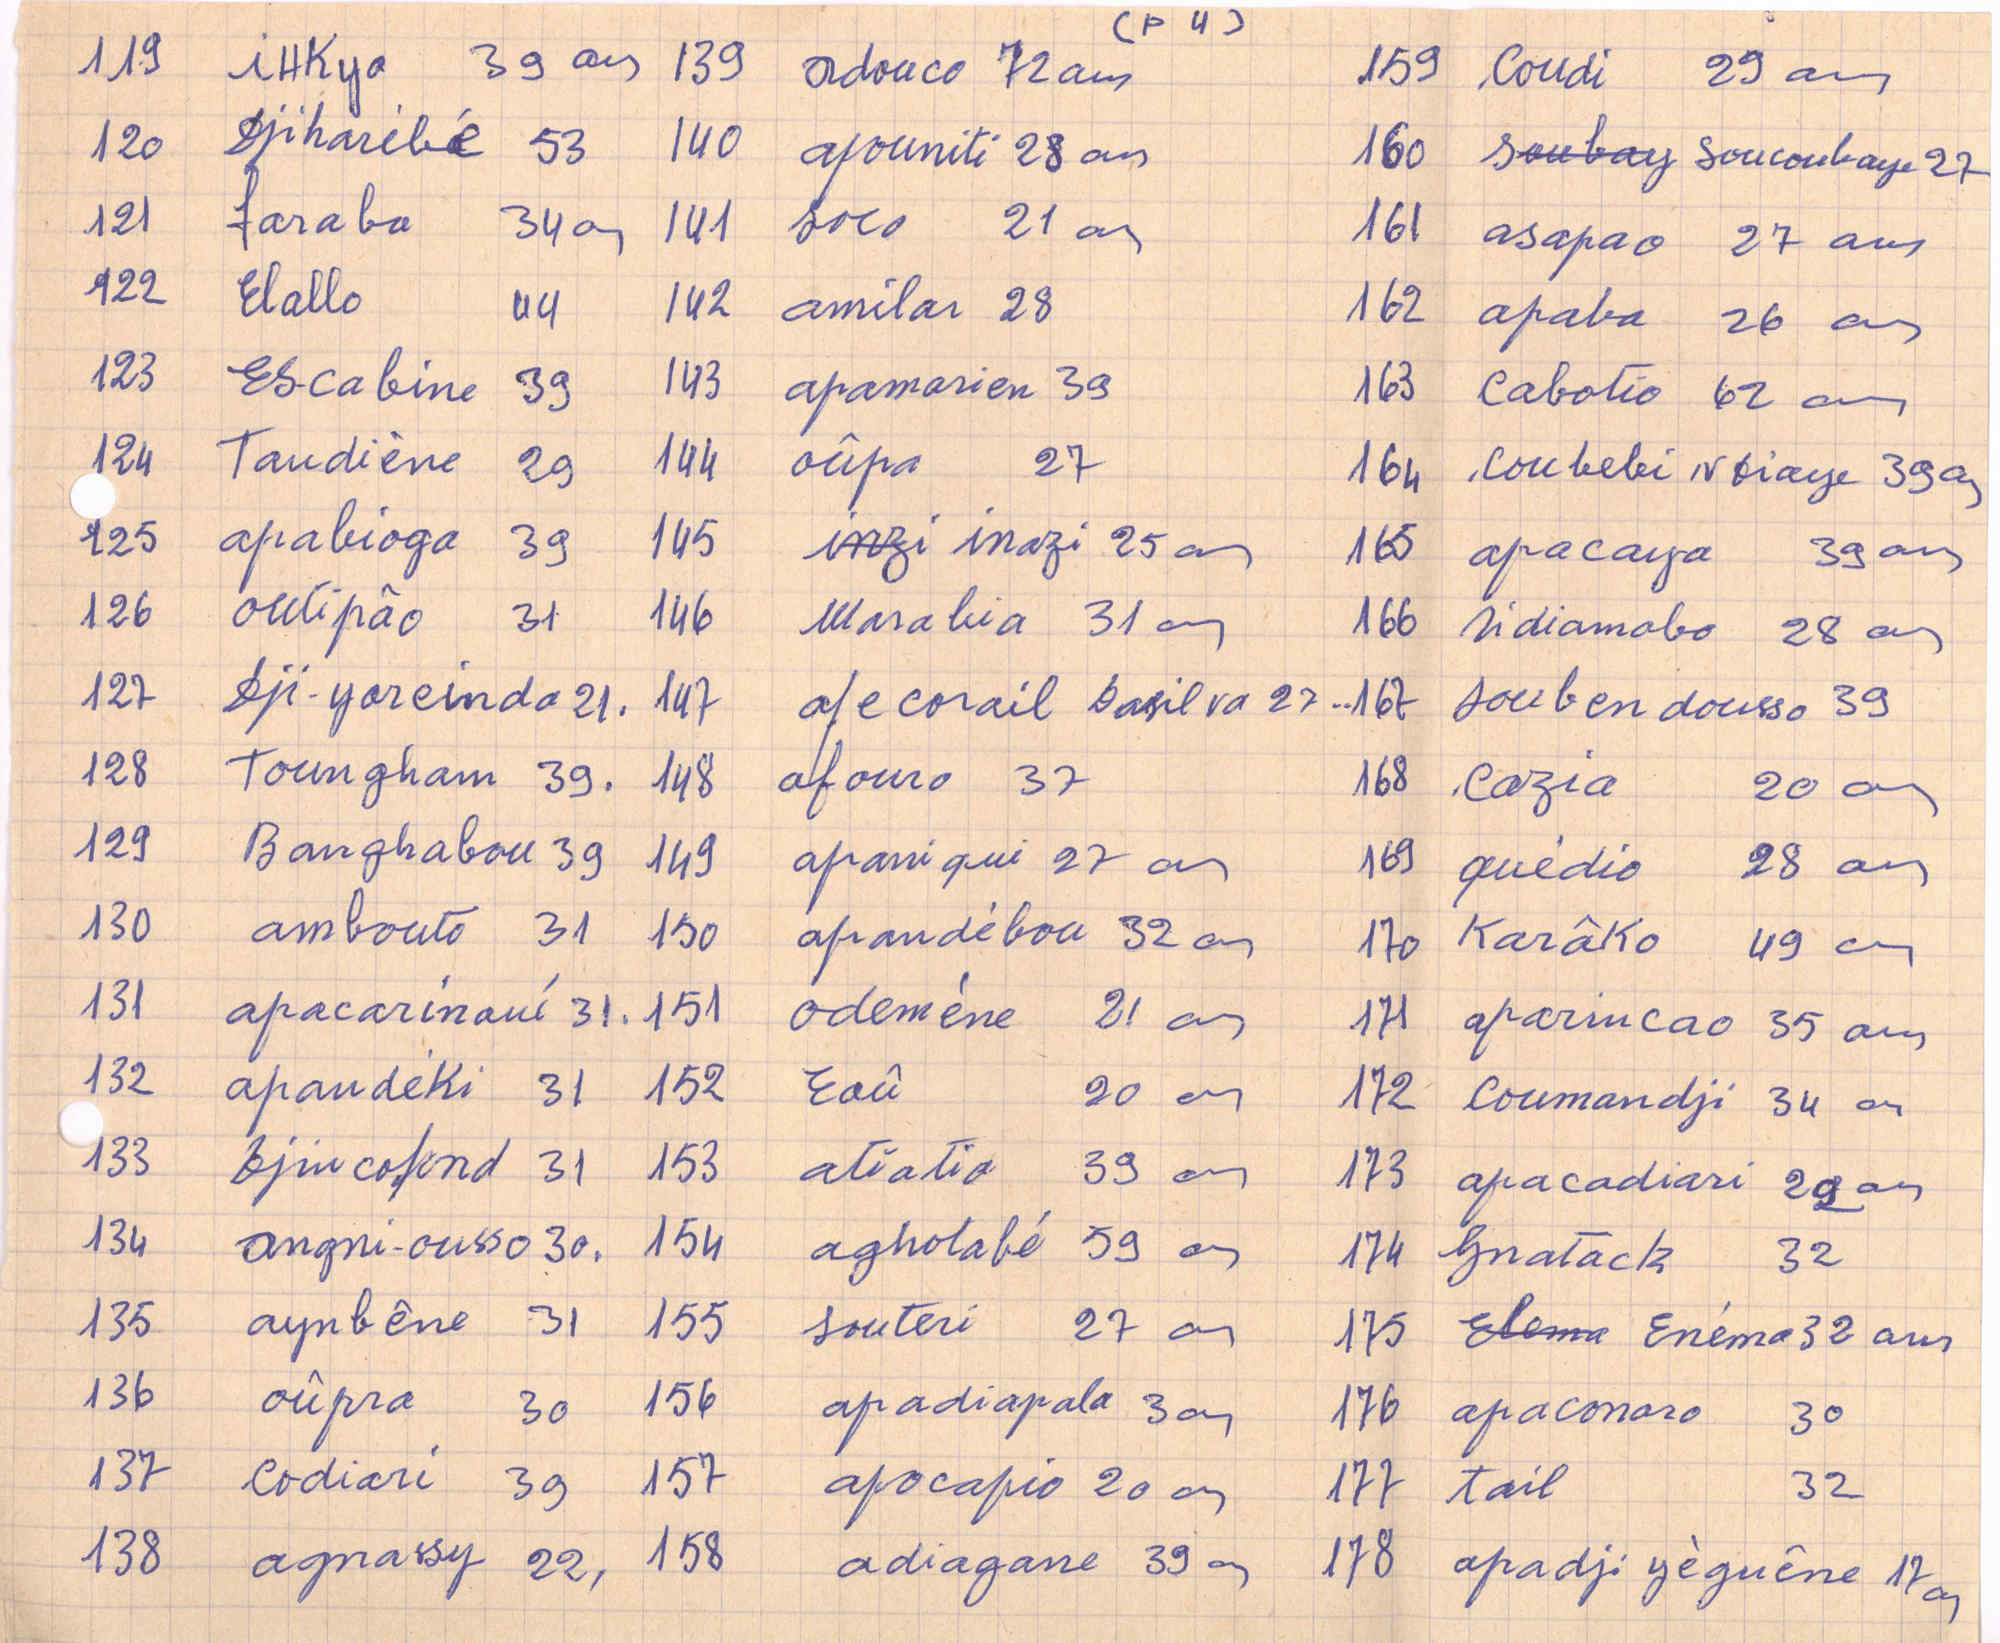 (P 4)
119 iHKya 39 ans
120 Djiharébé 53
121 faraba 34 ans
122 Elallo 44
123 Escabine 39
124 Taudiène 29
125 apabioga 39
126 outipâo 31
127 Dji-yoreinda 21.
128 Toungham 39.
129 Banghabou 39
130 ambouto 31
131 apacarinoué 31.
132 apandéki 31
133 31
134 angni-ousso 30.
135 aynbêne 31
136 oûpra 30
137 Codiari 39
138 agnassy 22,
139 adouco 72 ans
140 apouniti 28 ans
141 soco 21 ans
142 amilar 28
143 apamarien 39
144 oûpa 27
145 inzi inazi 25 ans
146 Marabia 31 ans
147 afecorail Dasilva 27..
148 afouro 37
149 apaniqui 27 ans
150 apandébou 32 ans
151 odeméne 21 ans
152 Eaû 20 ans
153 atiatia 39 ans
154 agholabé 59 ans
155 souteri 27 ans
156 apadiapala 3 ans
157 apocapio 20 ans
158 adiagane 39 ans
159 Coudi 29 ans
160 Soubay Soucoubaye 27
161 asapao 27 ans
162 apaba 26 ans
163 Cabotio 62 ans
164 Coubebi N Diaye 39 ans
165 apacaya 39 ans
166 Sidiamabo 28 ans
167 soubendousso 39
168 Cazia 20 ans
169 quédio 28 ans
170 Karâko 49 ans
171 aparincao 35 ans
172 Coumandji 34 ans
173 apacadiari 29 ans
174 Gnatack 32
175 Elema Enéma 32 ans
176 apaconaro 30
177 tail 32
178 apadji yèguêne 17 ans